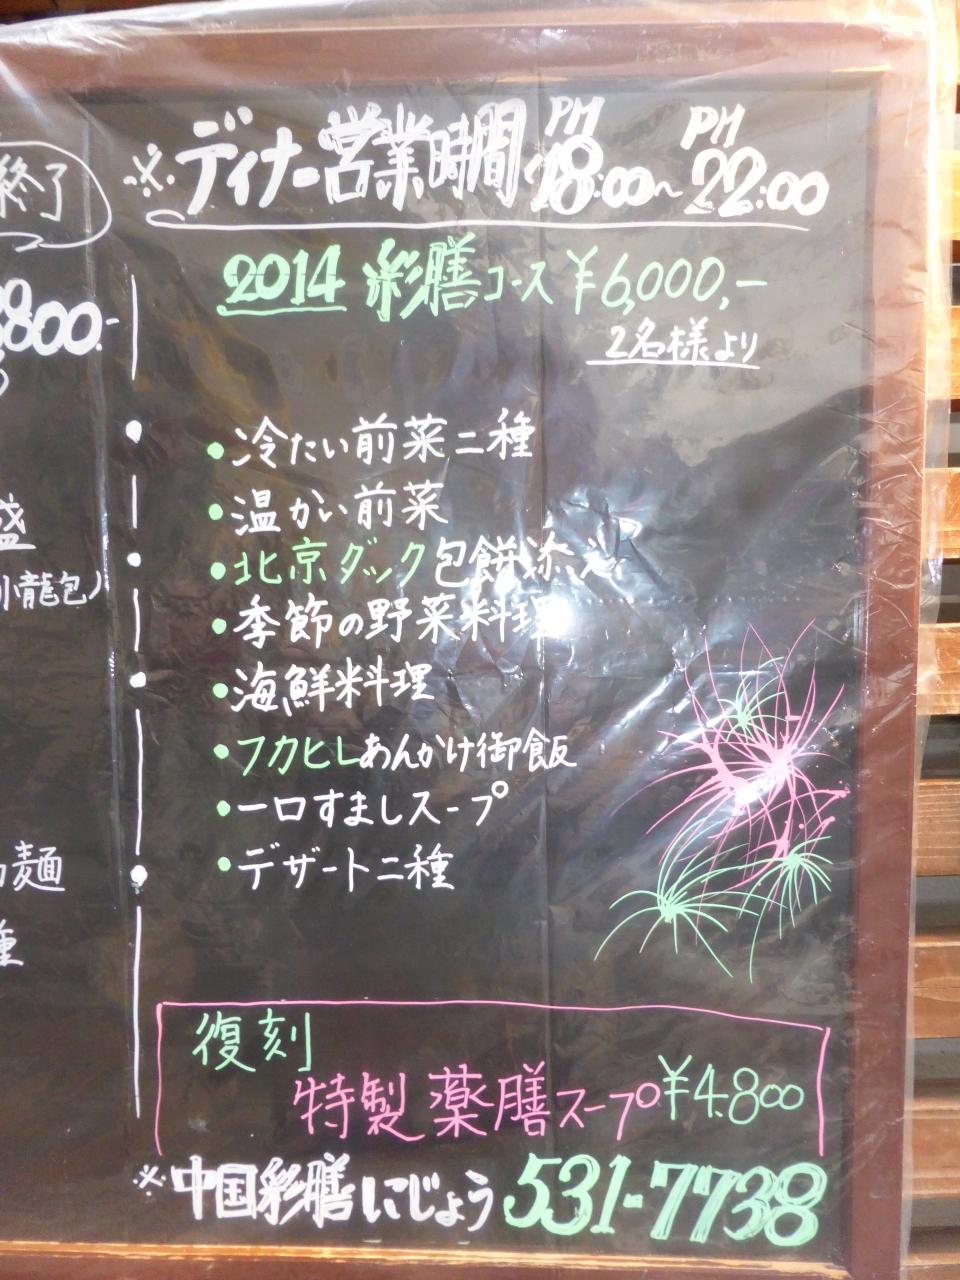 ※ディナー営業時間 PM 18:00〜 PM 22:00
2014 彩膳コース ¥6,000,-
2名様より
・冷たい前菜二種
・温かい前菜
・北京ダック包餅添え
・季節の野菜料理
・海鮮料理
・フカヒレあんかけ御飯
・一口すましスープ
・デザート二種
復刻
特製 薬膳スープ ¥4.800
※中国彩膳にじょう 531-7738
終了
800.-
盛
小龍包)
麺
種